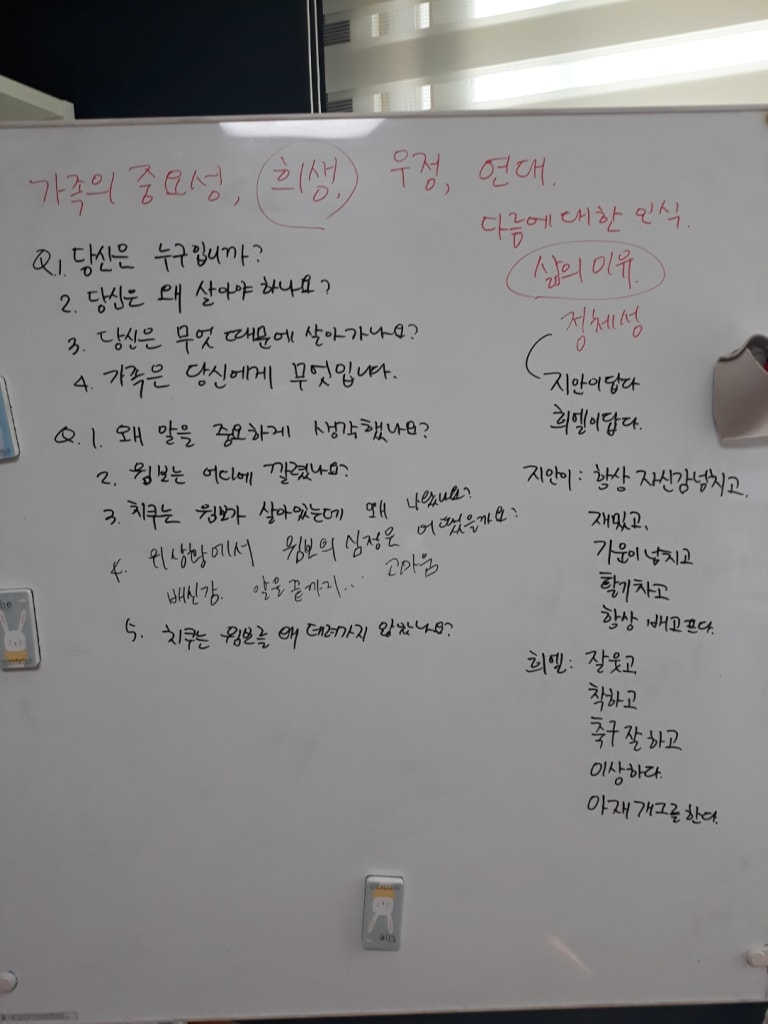 가족의 중요성, 희생, 우정, 연대.
다름에 대한 인식.
삶의 이유.
정체성
지안이답다
희엘이답다.
Q.1. 당신은 누구입니까?
2. 당신은 왜 살아야 하나요?
3. 당신은 무엇 때문에 살아가나요?
4. 가족은 당신에게 무엇입니다.
Q. 1. 왜 알을 중요하게 생각했나요?
2. 윔보는 어디에 깔렸나요?
3. 치쿠는 윔보가 살아있는데 왜 나왔나요?
4. 위상황에서 윔보의 심정은 어땠을까요?
배신감. 알을 끝까지... 고마움
5. 치쿠는 윔보를 왜 데려가지 않았나요?
지안이: 항상 자신감넘치고,
재밌고,
기운이 넘치고
활기차고
항상 배고프다.
희엘: 잘웃고
착하고
축구 잘 하고
이상하다.
아재개그를한다.